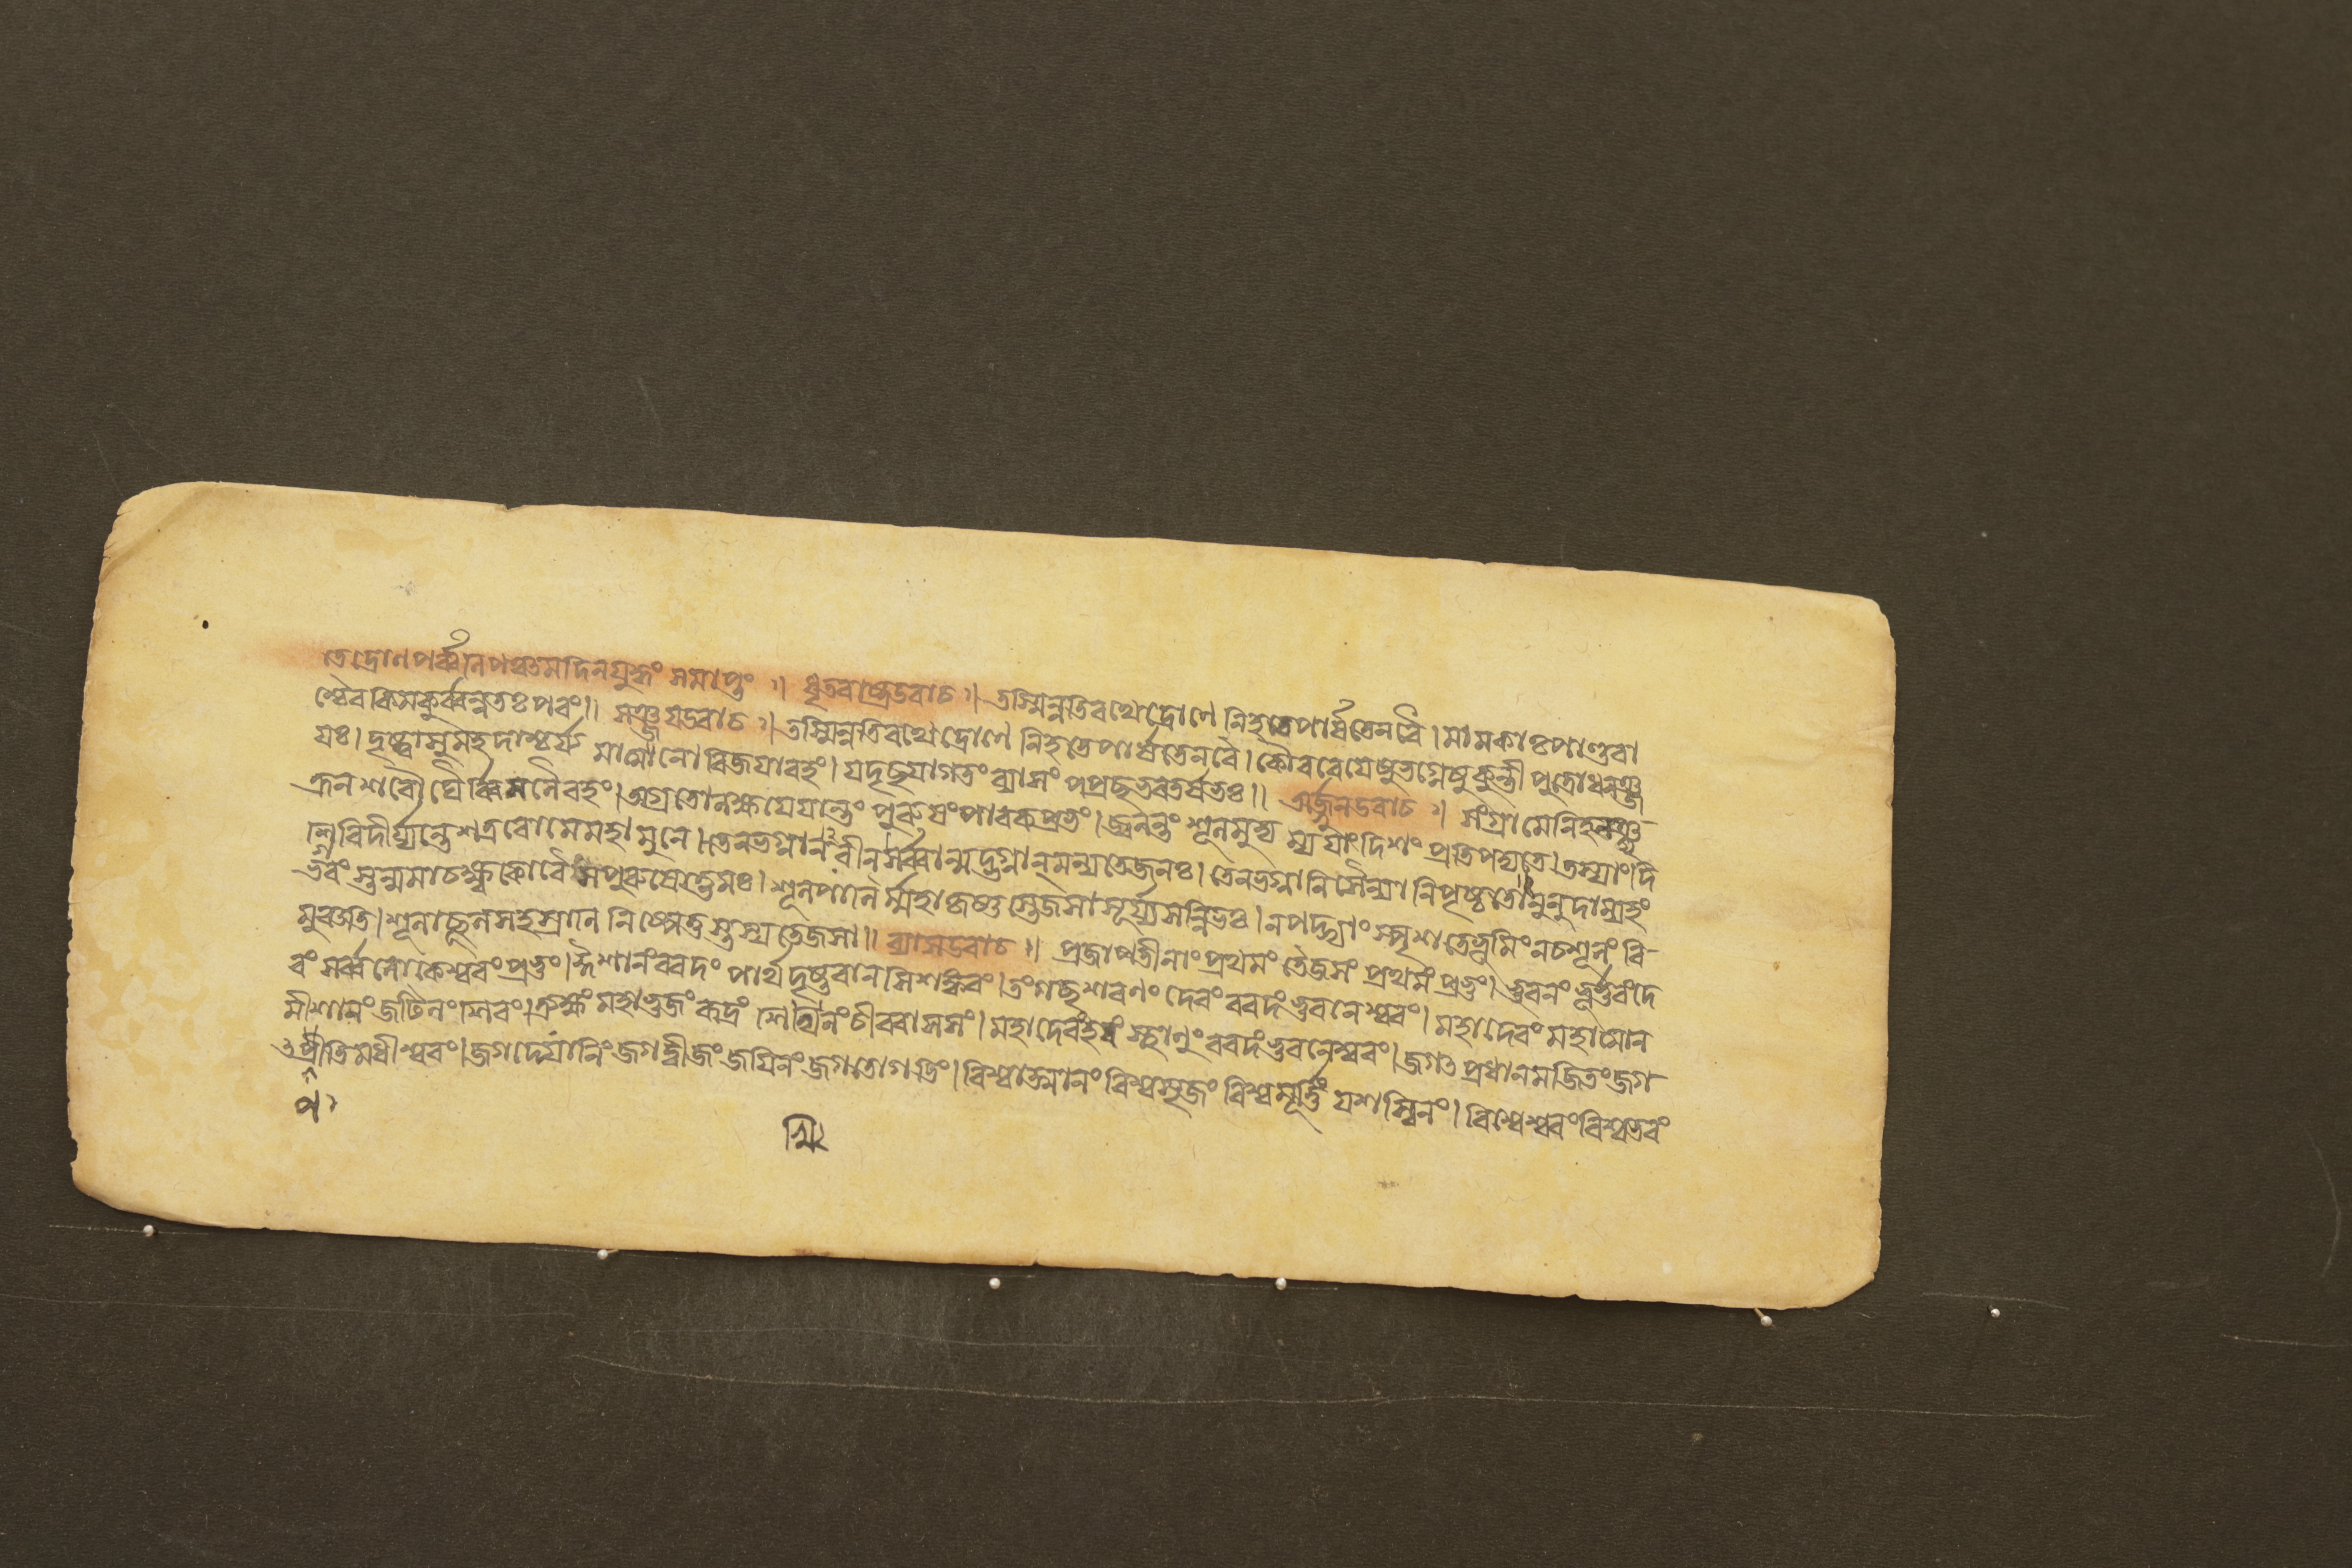 তেদ্রোণপর্ব্বনিপঞ্চতমদিনযুদ্ধং সমাপ্তং ঃ। ধৃতরাষ্ট্রউবাচ ঃ। তস্মিন্নতিরথেদ্রোণে নিহতেপার্ষতেনবৈ। মামকাঃপাণ্ডবা
শ্চৈবকিমকুর্ব্বন্নতঃপরং॥ সঞ্জয়উবাচ ঃ। তস্মিন্নতিরথেদ্রোণে নিহতেপার্ষতেনবৈ। কৌরবেয়েষুভগ্নেষুকুন্তীপুত্রোধনঞ্জ
য়ঃ। দৃষ্ট্বাসুমহদাশ্চর্য্য মাত্মনোবিজয়াবহং। যদৃচ্ছয়াগতংব্যাসং পপ্রচ্ছভরতর্ষভঃ॥ অর্জ্জুনউবাচ ঃ। সংগ্রামেনিহনঞ্ছ
ত্রূনশরৌঘৈর্ব্বিমলৈরহং। অগ্রতোলক্ষয়েযান্তং পুরুষংপাবকপ্রভং। জ্বলন্তং শূলমুদ্যম্য যাংদিশং প্রতিপদ্যতে। তস্যাংদি
শিবিদীর্য্যন্তেশত্রবোমেমহামুনে। তেনভগ্নানরীনসর্ব্বান্মদ্ভগ্নান্মন্যতেজনঃ। তেনভগ্নানিসৈন্যানিপৃষ্ঠতোনুনুদাম্যহং
ভগবংস্তন্মমাচক্ষ্বকোবৈসপুরুষোত্তমঃ। শূলপাণির্ম্মহাকৃষ্ণস্তেজসাসূর্য্যসন্নিভঃ। নপদ্ভ্যাংস্পৃশতেভূমিংনচশূলংবি
মুঞ্চতি। শূলাচ্ছূলসহস্রাণি নিষ্পেতুস্তস্যতেজসা॥ ব্যাসউবাচ ঃ। প্রজাপতীনাংপ্রথমং তৈজসং প্রথমংপ্রভুং। ভুবনংভূর্ভুবংদে
বং সর্ব্বলোকেশ্বরংপ্রভুং। ঈশানংবরদং পার্থদৃষ্টবানসিশঙ্করং। তংগচ্ছশরণং দেবং বরদংভুবনেশ্বরং। মহাদেবংমহাত্মান
মীশানংজটিলংশিবং। ত্র্যক্ষংমহাভুজংরুদ্রং শিখিনংচীরবাসসং। মহাদেবংহরংস্থাণুংবরদংভুবনেশ্বরং। জগৎপ্রধানমজিতংজগ
ৎপ্রীতিমধীশ্বরং। জগদ্যোনিংজগদ্বীজংজয়িনংজগতোগতিং। বিশ্বাত্মানংবিশ্বসৃজংবিশ্বমূর্ত্তিংযশস্বিনং। বিশ্বেশ্বরংবিশ্বতরং